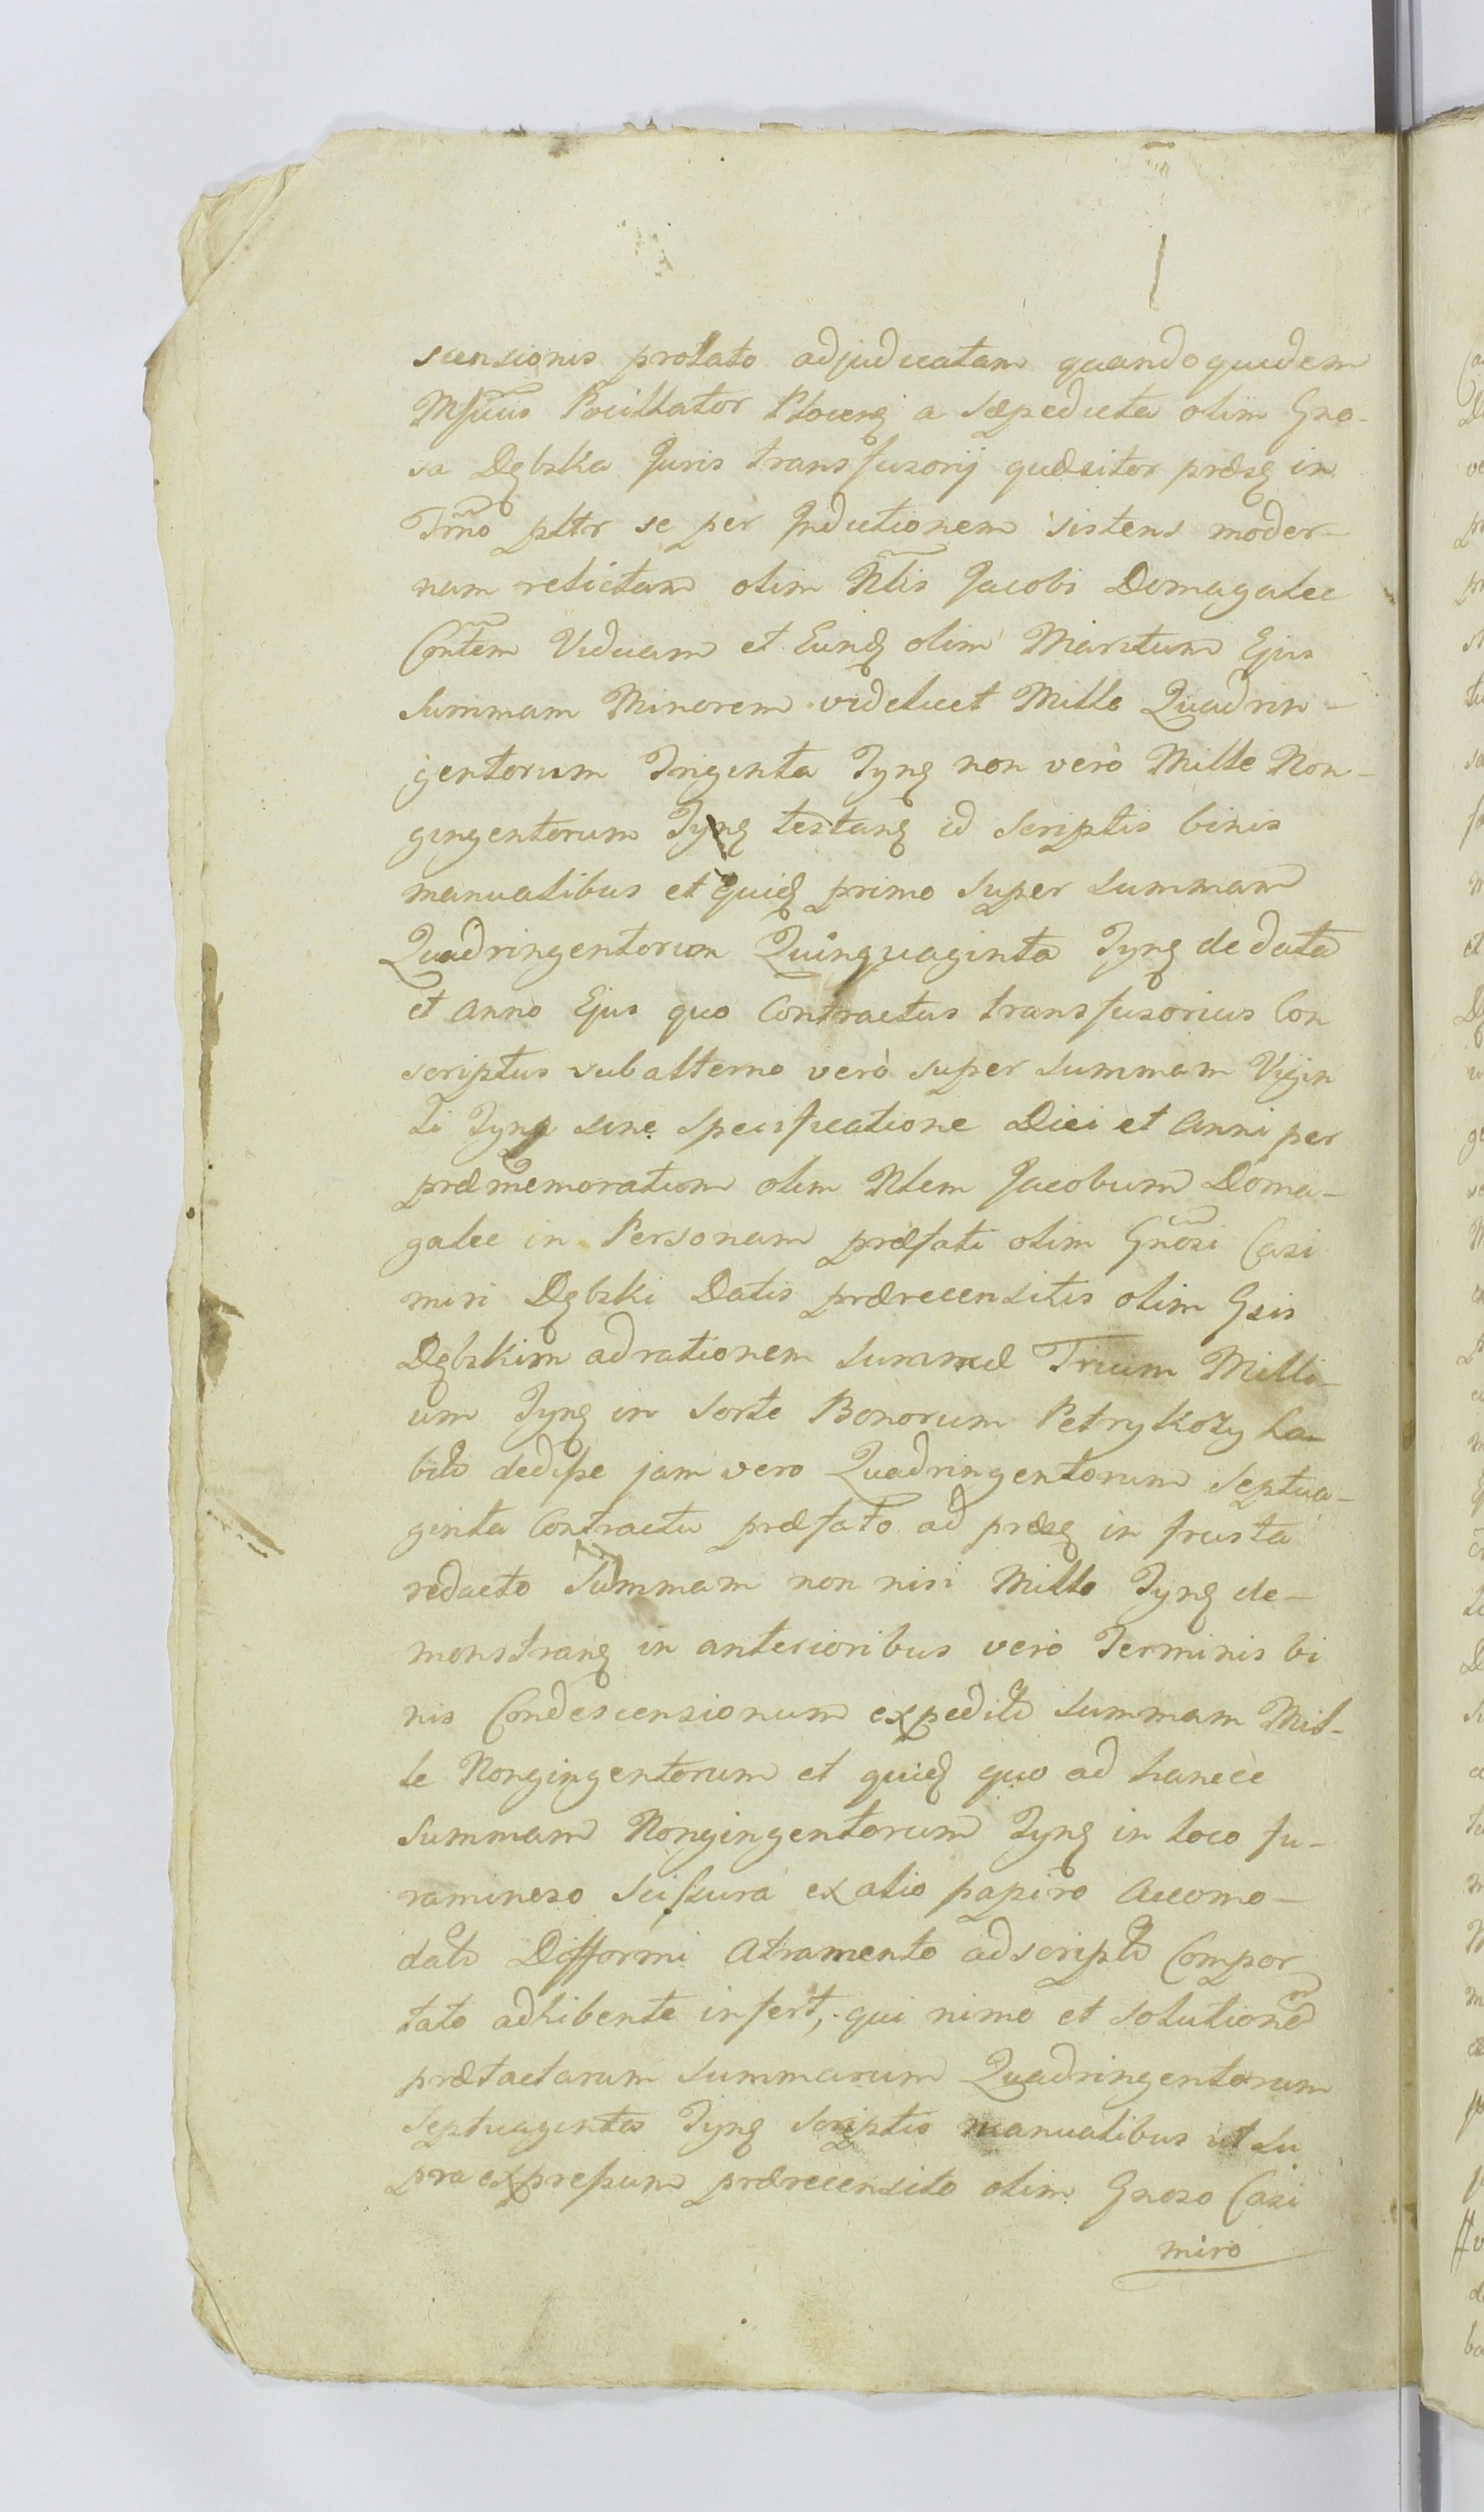 scensionis prolato adjudicatam quandoquidem
Mficus Pocillator Plocenς a sæpedicta olim Gno-
sa Dębska Juris transfusorij quæsitor præsς in
Trno pltr se per Inductionem sistens moder-
nam relictam olim Nlis Jacobi Domagalec
Cōntem Viduam et Eundς olim Maritum Ejus
Summam Minorem videlicet Mille Quadrin-
gentorum Triginta Tynς non verò Mille Non-
gingentorum Tynς testanς id Scriptis binis
manualibus et quidς primo super summam
Quadringentorum Quinquaginta Tynς de data
et Anno Ejus quo Contractus transfusorius Con
scriptus subalterno verò super summam Vigin
ti Tynς sine specificatione Diei et Anni per
præmemoratum olim Nlem Jacobum Doma-
galec in Personam præfati olim Gnosi Casi
miri Dębski Datis prærecensitis olim Gsis
Dębskim ad rationem summæ Trium Milli-
um Tynς in Sorte Bonorum Petrykozy ha-
bita dedisse jam vero Quadringentorum Septua-
ginta Contractu præfato ad præsς in frusta
redacto Summam non nisi Mille Tynς de-
monstranς in anterioribus verò Terminis bi
nis Condescensionum expedito summam Mil-
le Nongingentorum et quidς quo ad hancce
Summam Nongingentorum Tynς in loco fu-
ramineso Scissura ex alio papiro Accomo-
dato Difformi Atramento adscripto Compor
tato adhibente infert, qui nimo et solutione
prætactarum summarum Quadringentorum
Septuaginta Tynς scriptis manualibus ut su
pra expressum prærecensito olim Gnoso Casi
miro